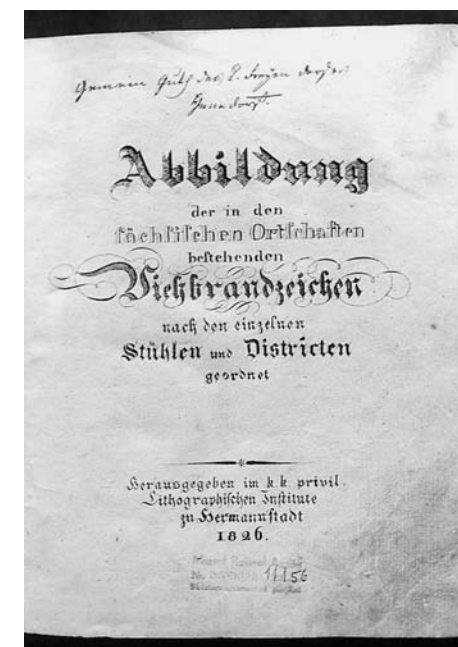 Gemein Guth des k. freyen dorfes
Abbildung
der in den
sächsischen Ortschaften
bestehenden
Viehbrandzeichen
nach den einzelnen
Stühlen und Districten
geordnet
Herausgegeben im k. k. privil.
Lithographischen Institute
zu Hermannstadt
1826.
11156